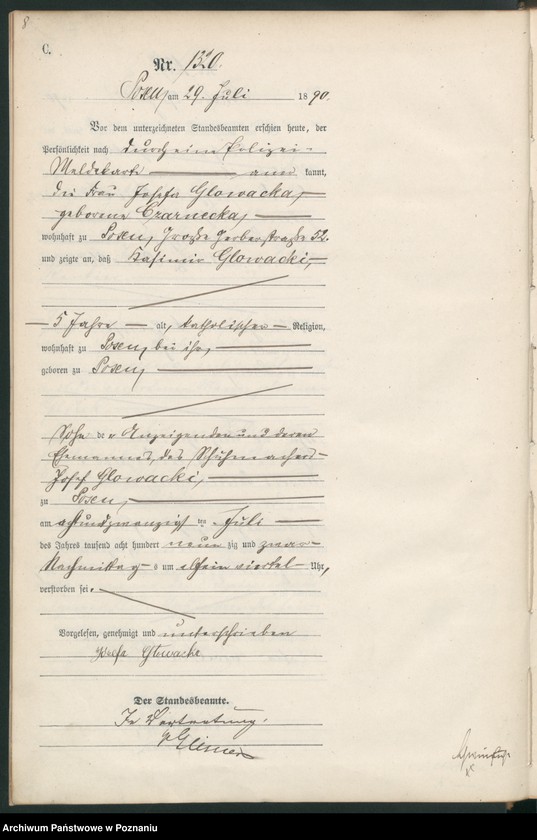 8
C.
Nr. 1520.
Posen, am 29. Juli 1890.
Vor dem unterzeichneten Standesbeamten erschien heute, der
Persönlichkeit nach durch eine Polizei-
Meldekarte anerkannt,
die Frau Josefa Glowacka,
geborene Czarnecka,
wohnhaft zu Posen, Große Gerberstraße 52.
und zeigte an, daß Kasimir Glowacki,
5 Jahre alt, katholischer Religion,
wohnhaft zu Posen, bei ihr,
geboren zu Posen,
Sohn der Anzeigenden und deren
Ehemannes, des Schuhmachers
Josef Glowacki,
zu Posen,
am achtundzwanzigsten Juli
des Jahres tausend acht hundert neunzig und zwar
Nachmittags um ein viertel Uhr,
verstorben sei.
Vorgelesen, genehmigt und unterschrieben
Josefa Głowacka
Der Standesbeamte.
In Vertretung.
Archiwum Państwowe w Poznaniu